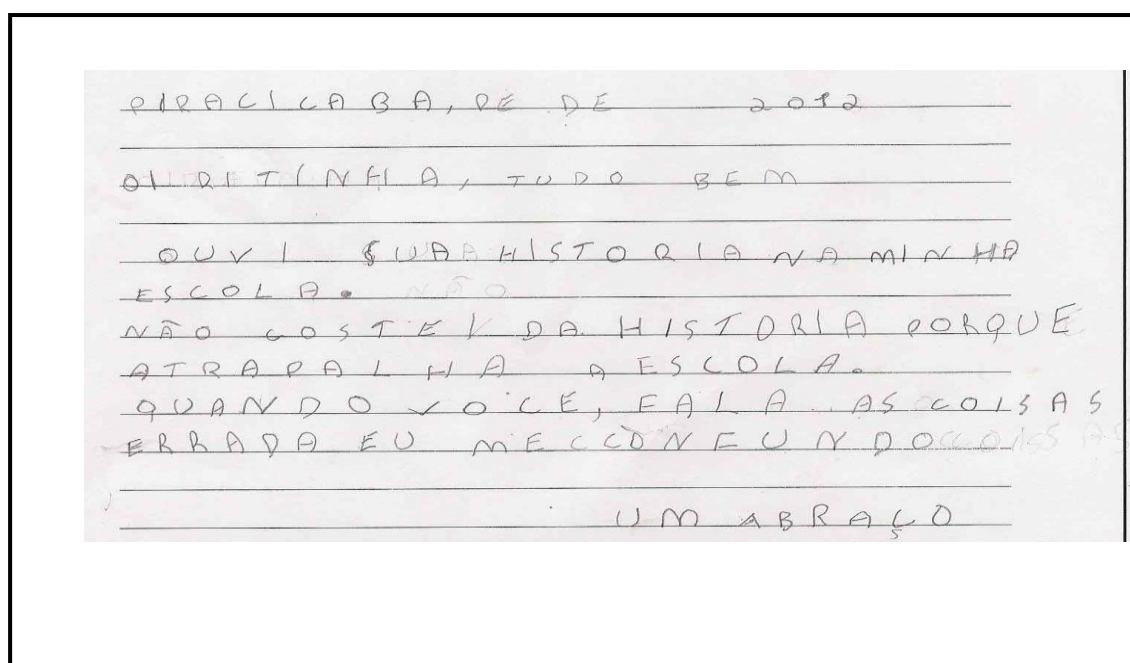 PIRACICABA, DE DE 2012
OI RITINHA, TUDO BEM
OUVI SUA HISTORIA NA MINHA
ESCOLA. NÃO
NÃO GOSTEI DA HISTORIA PORQUE
ATRAPALHA A ESCOLA.
QUANDO VOCE, FALA AS COISAS
ERRADA EU ME CCONFUNDO COISAS
UM ABRAÇO